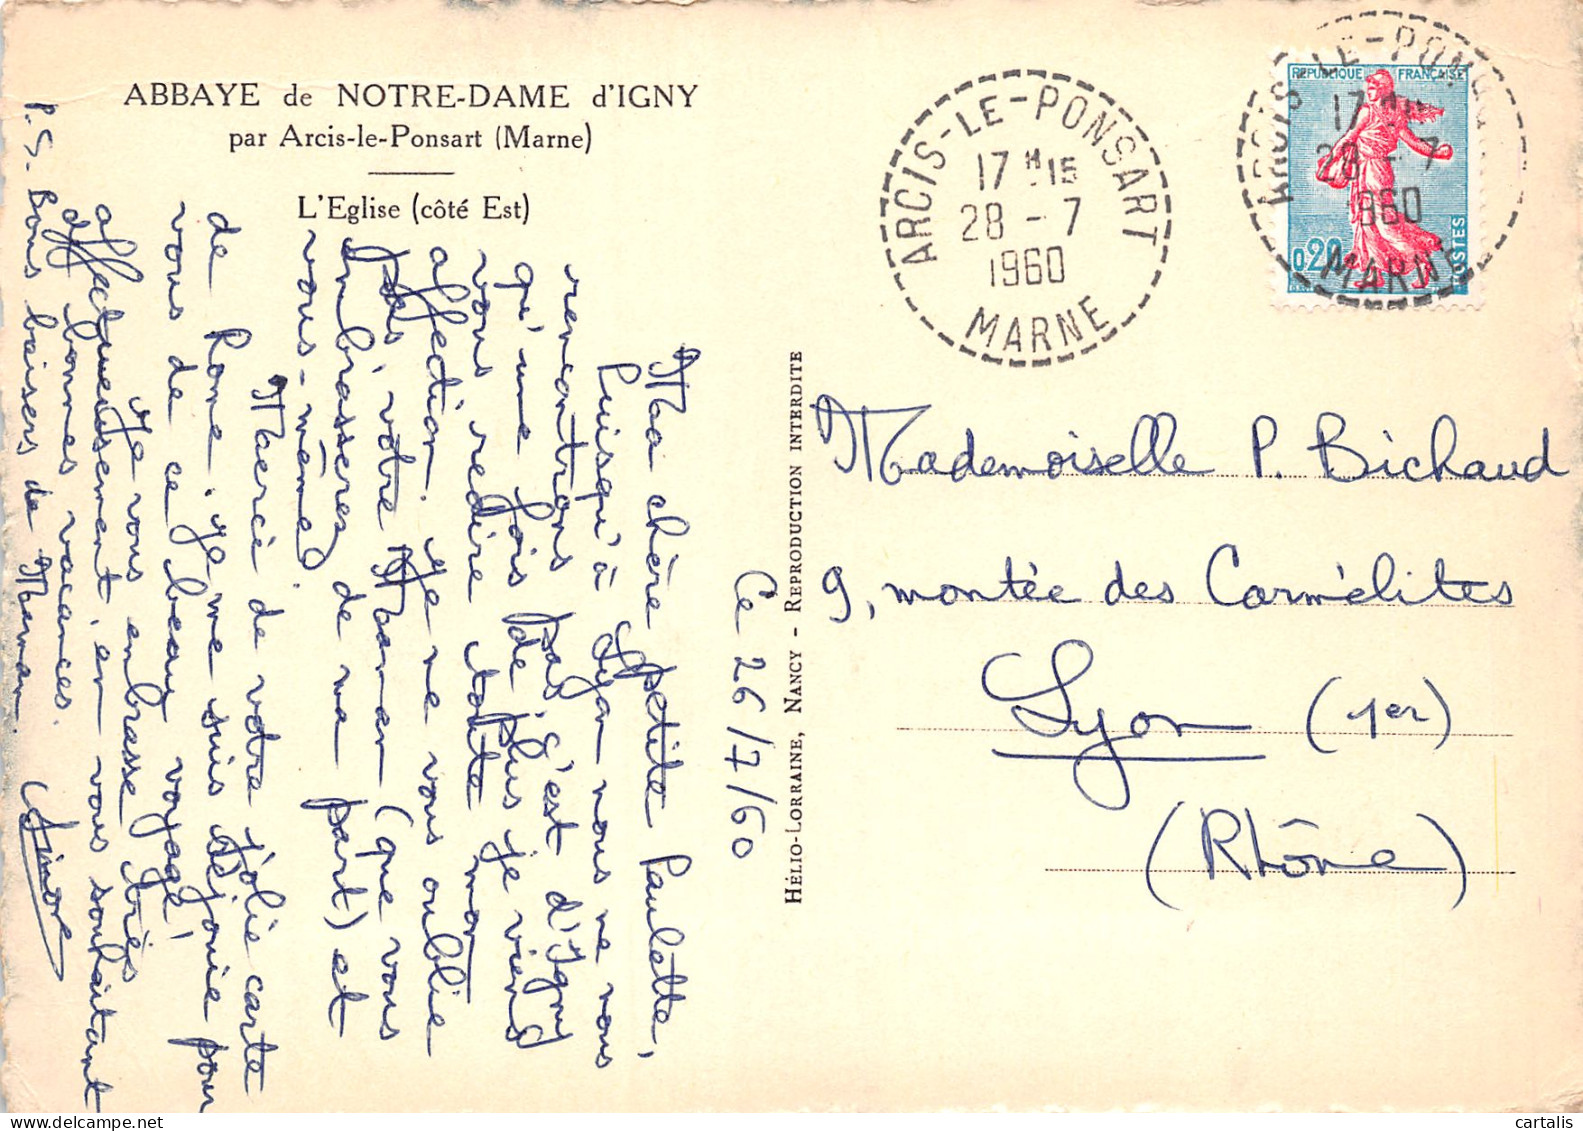 ABBAYE de NOTRE-DAME d'IGNY
par Arcis-le-Ponsart (Marne)
L'Eglise (côté Est)
Ce 26/7/60
Ma chère petite Paulette,
Puisqu'à Lyon nous ne nous
rencontrons pas, c'est d'Igny
qu'une fois de plus je viens
vous redire toute mon
affection. Je ne vous oublie
pas, votre Maman (que vous
embrasserez de ma part) et
vous-même.
Merci de votre jolie carte
de Rome. Je me suis réjouie pour
vous de ce beau voyage!
Je vous embrasse très
affectueusement, en vous souhaitant
de bonnes vacances.
P.S. Bons baisers de Maman.
Simone
HÉLIO-LORRAINE, NANCY - REPRODUCTION INTERDITE
ARCIS-LE-PONSART
17 H 15
28 - 7
1960
MARNE
ARCIS-LE-PONSART
17 H
28 - 7
1960
MARNE
REPUBLIQUE FRANÇAISE
0,20
POSTES
Mademoiselle P. Bichaud
9, montée des Carmélites
Lyon (1er)
(Rhône)
cartalis